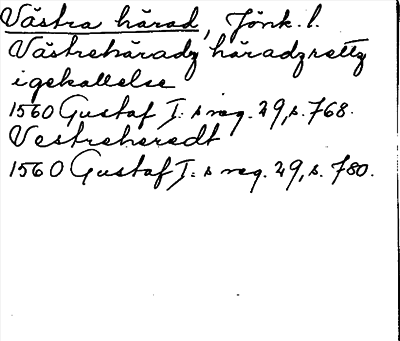 Västra härad, Jönk. l.
Västrehäradz häradzrettz
igekallelse
1560 Gustaf I:s reg. 29, s. 768.
Vestreheredt
1560 Gustaf I:s reg. 29, s. 780.